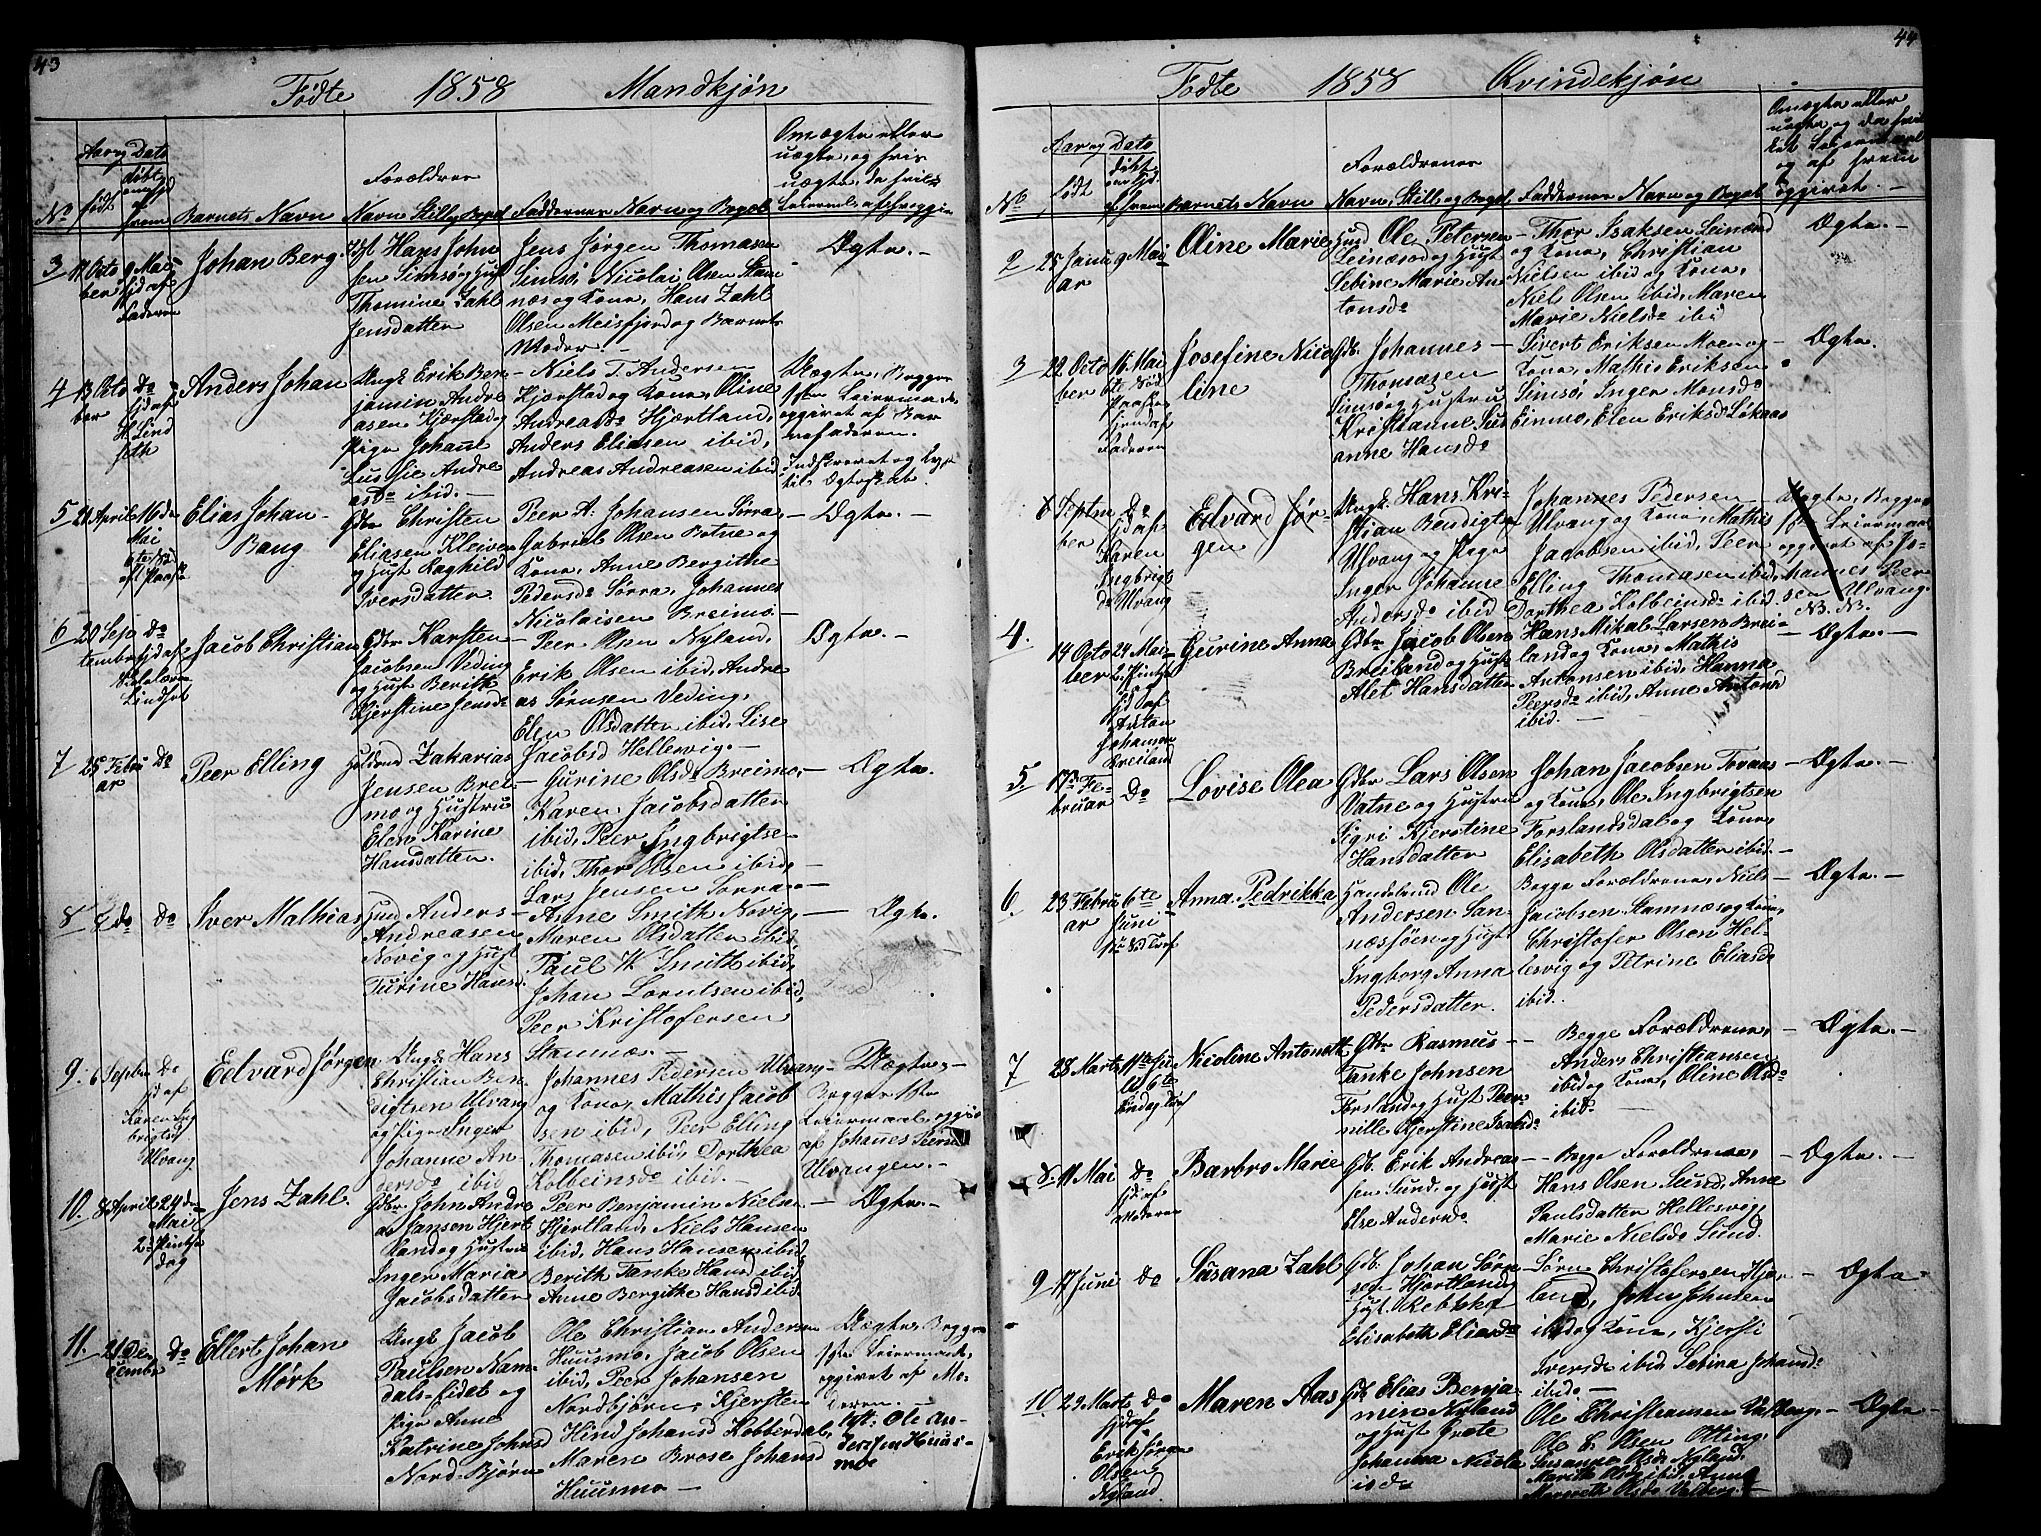 43
Fødte 1858 Mandkjøn
Aar og Dato
No
født
døbt
Barnets Navn
Forældrenes
Navn Still. og Bopæl
Faddernes Navn og Bopæl
Om ægte eller
uægte, og hvis
uægte, da hvilket
3
11 October
9 Mai
hjd af
Faderen
Johan Berg.
Hans Johnsen Simsø og Hust
Thomine Zahl
Jensdatter
Jens Jørgen Thomasen
Simsø, Nicolai Olsen Stamnæs
og Kone, Hans Zahl
Olsen Meisfjord og Barnets
Moder.
Ægte.
4
13 October
do
Anders Johan
Ungk Erik Benjamin Andreasen
Hjerstad og
Pige Johane
Andreasd. ibid.
Niels T. Andersen
Hjærstad og Kone, Oline
Andreasd. Hjærtland,
Anders Eliasen ibid,
Andreas Andreasen ibid
Uægte, Begges
1ste Leiermaal,
opgivet af Barnefaderen.
5
21 April
16de Mai
Elias Johan
Bang
Gbr Christen
Eliasen Kleiven
og Hust Raghild
Iversdatter
Peer A. Johansen Sørra
Gabriel Olsen Botne og
Kone, Anne Bergithe
Pedersd. Sørra, Johannes
Nicolaisen Breimo
Ægte.
6
20 September
do
Jacob Christian
Gbr Karsten
Jacobsen Veding
og Hust Berith
Kjerstine Jensd.
Peer Olsen Nyland,
Erik Olsen ibid, Andreas
Sørnsen Veding,
Elen Olsdatter ibid, Lise
Jacobsd Hellesvig.
Ægte.
7
25 Februar
do
Peer Elling
Zakarias
Jensen Breimo
og Hustru
Elen Karine
Hansdatter.
Gurine Olsd. Breimo,
Karen Jacobsdatter
ibid, Peer Ingbrigtsen
ibid, Thor Olsen ibid,
Lars Jensen Sørra
Ægte.
8
do
Iver Mathias
Hmd Anders
Andreasen
Novig og Hust
Turine Hansd.
Anne Smith Novig,
Maren Olsdatter ibid,
Paul W. Smith ibid,
Johan Lorntsen ibid,
Peer Kristofersen
Stamnæs.
Ægte.
9.
6 Septbr
do
hjd af
Karen Ingbrigtsd
Ulvang
Edvard Jørgen
Ungk Hans
Christian Bendigtsen
Ulvang
og Pige Inger
Johanne Andersd.
ibid
Johannes Pedersen Ulvang
og Kone, Mathis Jacobsen
ibid, Peer Elling
Thomasen ibid, Dorthea
Kolbeinsd. ibid.
Uægte,
Begges 1ste
Leiermaal, opgivet
af Johanes Peersen
Ulvangen.
10.
8 April
24de Mai
2d Pintsedag
Jens Zahl.
Gbr John Andreas
Jansen Hjertland
og Hustru
Inger Maria
Jacobsdatter
Peer Benjamin Nielsen
Hjertland, Niels Hansen
ibid, Hans Hansen ibid,
Berith Tanke Hansd ibid,
Anne Bergitke Hansd ibid
Ægte.
11.
21 December
do
Ellert Johan
Mørk
Ungk Jacob
Paulsen Namdals-Eidet
og
Pige Anne
Katrine Johnsd
Nord-Bjørn
Ole Christian Andersen
Huusmo, Jacob Olsen
ibid, Peer Johansen
Nordbjørn, Kjersten
Hind Johansd Kobberdal,
Maren Brose Johansd
Huusmo
Uægte, Begges
1ste Leiermaal,
opgivet af Moderen.
Ole Andersen
Huusmo
44
Fødte 1858 Qvindekjøn
Aar og Dato
No
født
Barnets Navn
Forældrenes
Navn, Still. og Bopæl
Faddernes Navn og Bopæl
opgivet.
2
25 Januar
9 Mai
Oline Marie
Hmd Ole Petersen
Leinæs og Hust
Sebine Marie Antonsd.
Thor Isaksen Leinæs
og Kone, Christian
Nielsen ibid og Kone,
Niels Olsen ibid, Maren
Marie Nielsd. ibid
Ægte.
3
22 October
16 Mai
Josefine Nicoline
Gb. Johannes
Thomasen
Simsø og Hustru
Kristianne Susanne
Hansd.
Sivert Eriksen Moen og
Kone, Mathis Eriksen
Simsø, Inger Monsd.
Einmo, Elen Eriksd Løkaas
Ægte.
8 September
do
hjd af
Karen
Ingbrigtsd.
Ulvang
Edvard Jørgen
Ungk. Hans Kristian
Bendigtsen
Ulvang og Pige
Inger Johanne
Andersd. ibid
Johannes Pedersen
Ulvang og Kone, Mathis
Jacobsen ibid, Peer
Elling Thomasen ibid,
Dorthea Kolbeinsd. ibid.
Uægte, Begges
1ste Leiermaal
opgivet af Johannes
Peersen
Ulvang.
N.B.
4.
14 October
24 Mai
2 Pintsedag
hjd af
Anton
Johansen
Breiland
Gurine Anna
Gbr. Jacob Olsen
Breiland og Hust
Alet Hansdatter
Hans Mikal Larsen Breiland
og Kone, Mathis
Antonsen ibid, Hanna
Peersd. ibid, Anne Antonsd
ibid.
Ægte.
5
17de Februar
do
Lovise Olea
Gbr Lars Olsen
Vatne og Hustru
Sigri Kjerstine
Hansdatter
Johan Jacobsen Toraas
og Kone, Ole Ingbrigtsen
Forslandsdal og Kone,
Elisabeth Olsdatter ibid.
Ægte.
6
23 Februar
6te
Juni
Anna Pedrikka
Handelsmd Ole
Andersen Sannæssjøen
og Hust
Ingborg Anna
Pedersdatter.
Begge Forældrene, Niels
Jacobsen Stamnæs og Kone,
Christofer Olsen Hellesvig
og Petrine Eliasd.
ibid.
Ægte.
7
28 Marts
Nicoline Antonette
Gbr Rasmus
Tanke Johnsen
Forsland og Hust Peernille
Kjerstine
Begge Forældrene,
Anders Christiansen
ibid og Kone, Oline Olsd.
ibid.
Ægte.
8
11 Mai
do
hjd af
Moderen
Barbro Marie
Gb. Erik Andreassen
Sund, og Hust
Else Andersd.
Begge Forældrene,
Hans Olsen Sund, Anne
Paulsdatter Hellesvig,
Marie Nielsd. Sund.
Ægte.
9
17 Juni
do
Susana Zahl
Gb. Johan Sørensen
Hjertland og
Hust. Rebekka
Elisabeth Eliasd.
Sørn Christofersen Hjærtland,
John Johnsen
ibid og Kone, Kjersti
Iversd. ibid, Sebina Johansd.
ibid.
Ægte
10
29 Marts
do
hjd af
Erik Jørgen
Olsen
Nyland
Maren Aas
Gb Elias Benjamin
Nyland
og Hust Grete
Johanna Nicolaisd.
Ole Christiansen Valberg,
Ole C. Olsen Otting,
Susanne Olsd. Nyland,
Marith Olsd ibid, Anne
Margreth Olsd. Valberg.
Ægte